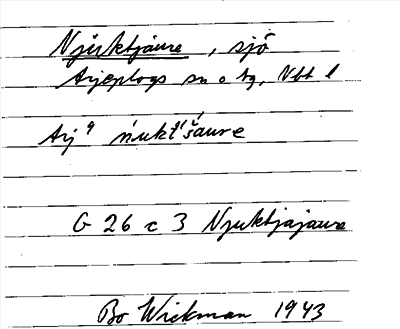 Njuktjaure, sjö
Arjeplogs sn o tg, Vbt l
Arj ńukt'šaure
G 26 c 3 Njuktjajaure
Bo Wickman 1943